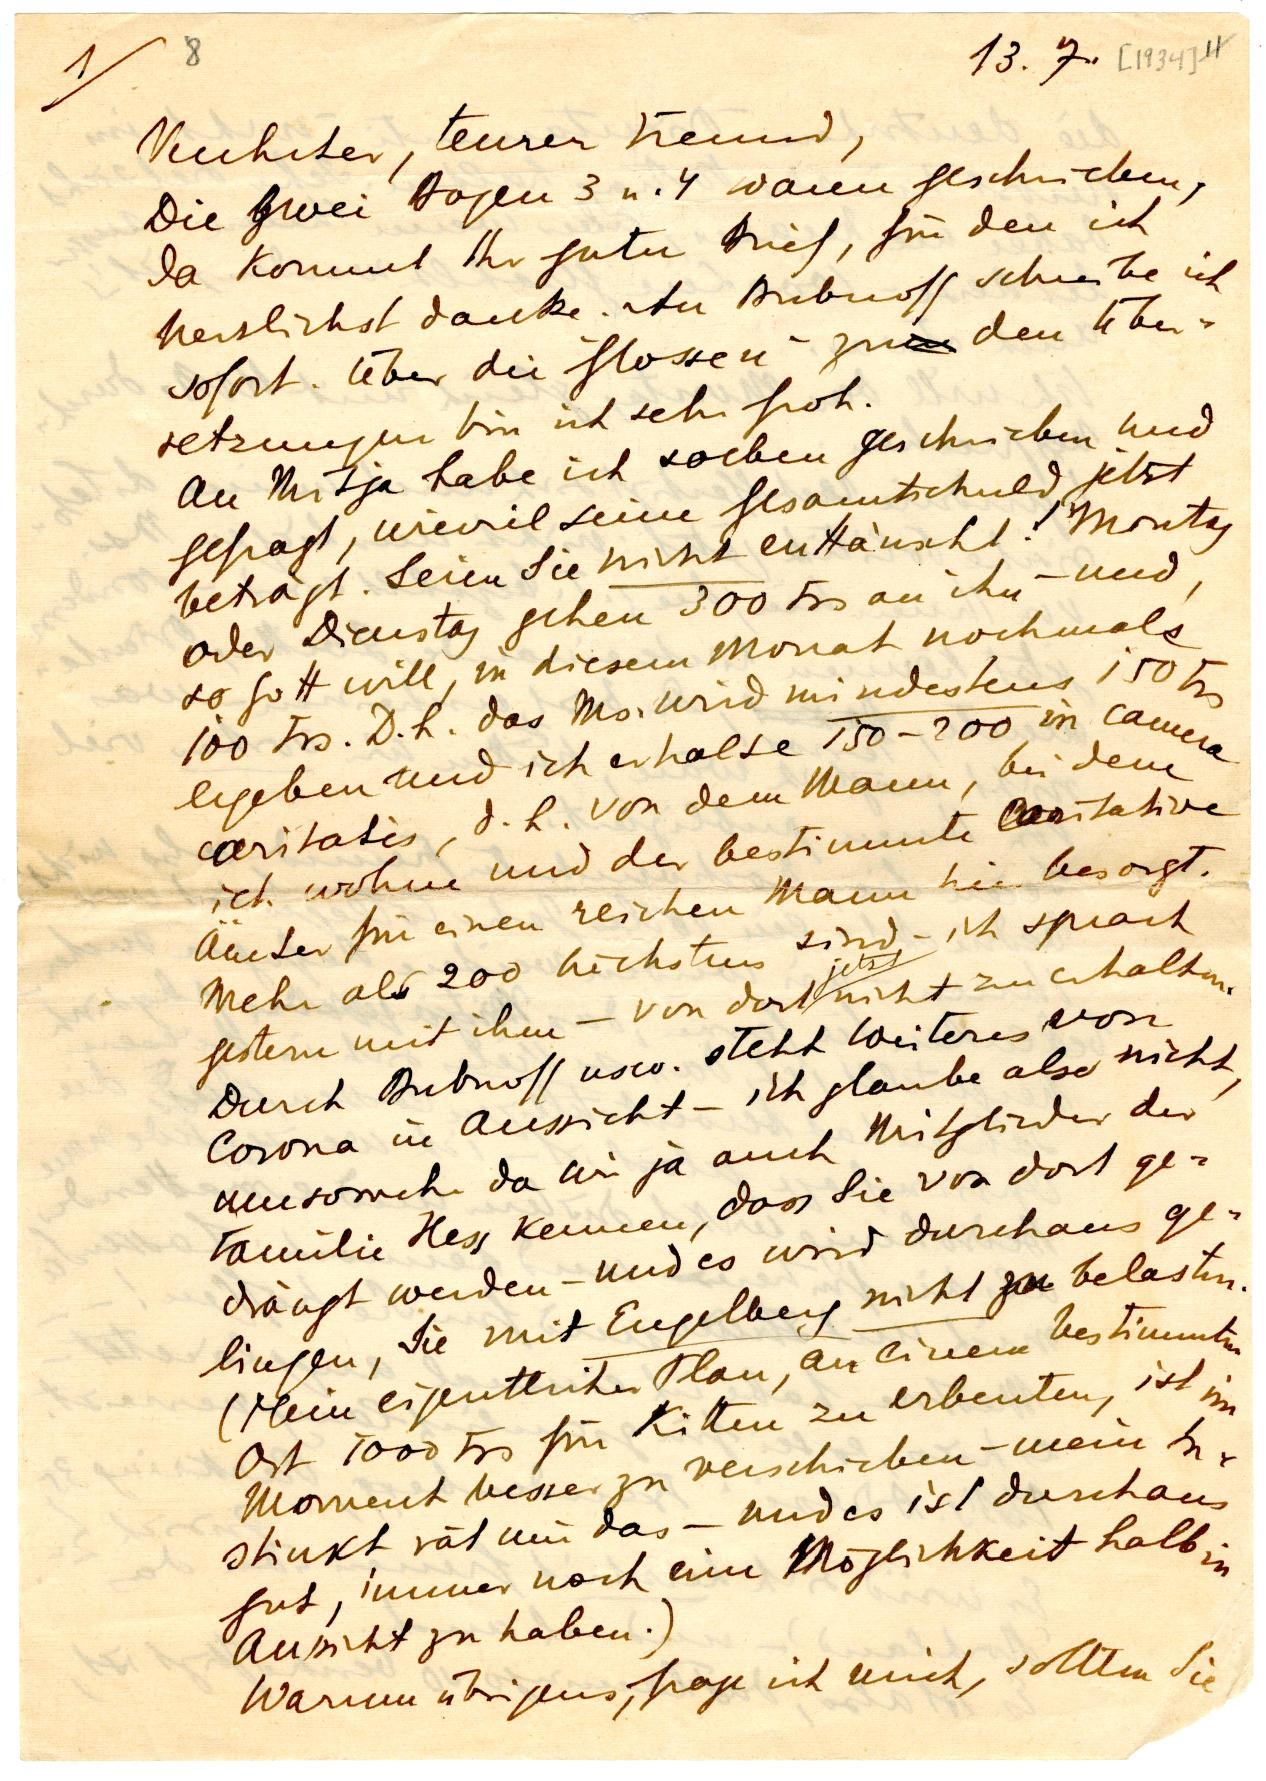 1/ 8 13. 7. [1934]
Verehrter, teurer Freund,
Die zwei Bogen 3 u. 4 waren geschrieben,
da kommt Ihr guter Brief, für den ich
herzlichst danke. An Bubnoff schreibe ich
sofort. Über die "Glossen" zu den Über-
setzungen bin ich sehr froh.
An Mitja habe ich soeben geschrieben und
gefragt, wieviel seine Gesamtschuld jetzt
beträgt. Seien Sie nicht enttäuscht! Montag
oder Dienstag gehen 300 Frs an ihn – und,
so Gott will, in diesem Monat nochmals
100 Frs. D.h. das Ms. wird mindestens 150 Frs
ergeben und ich erhalte 150–200 in camera
caritatis, d.h. von dem Mann, bei dem
ich wohne und der bestimmte caritative
Ämter für einen reichen Mann hier besorgt.
Mehr als 200 höchstens sind – ich sprach
gestern mit ihm – von dort jetzt nicht zu erhalten.
Durch Bubnoff usw. steht Weiteres von
Corona in Aussicht – ich glaube also nicht,
umsomehr da wir ja auch Mitglieder der
Familie Hess kennen, dass Sie von dort ge-
drängt werden – und es wird durchaus ge-
lingen, Sie mit Engelberg nicht zu belasten.
(Mein eigentlicher Plan, an einem bestimmten
Ort 1000 Frs für Kitten zu erbeuten, ist im
Moment besser zu verschieben – mein In-
stinkt rät mir das – und es ist durchaus
gut, immer noch eine Möglichkeit halb in
Aussicht zu haben.)
Warum übrigens, frage ich mich, sollten Sie